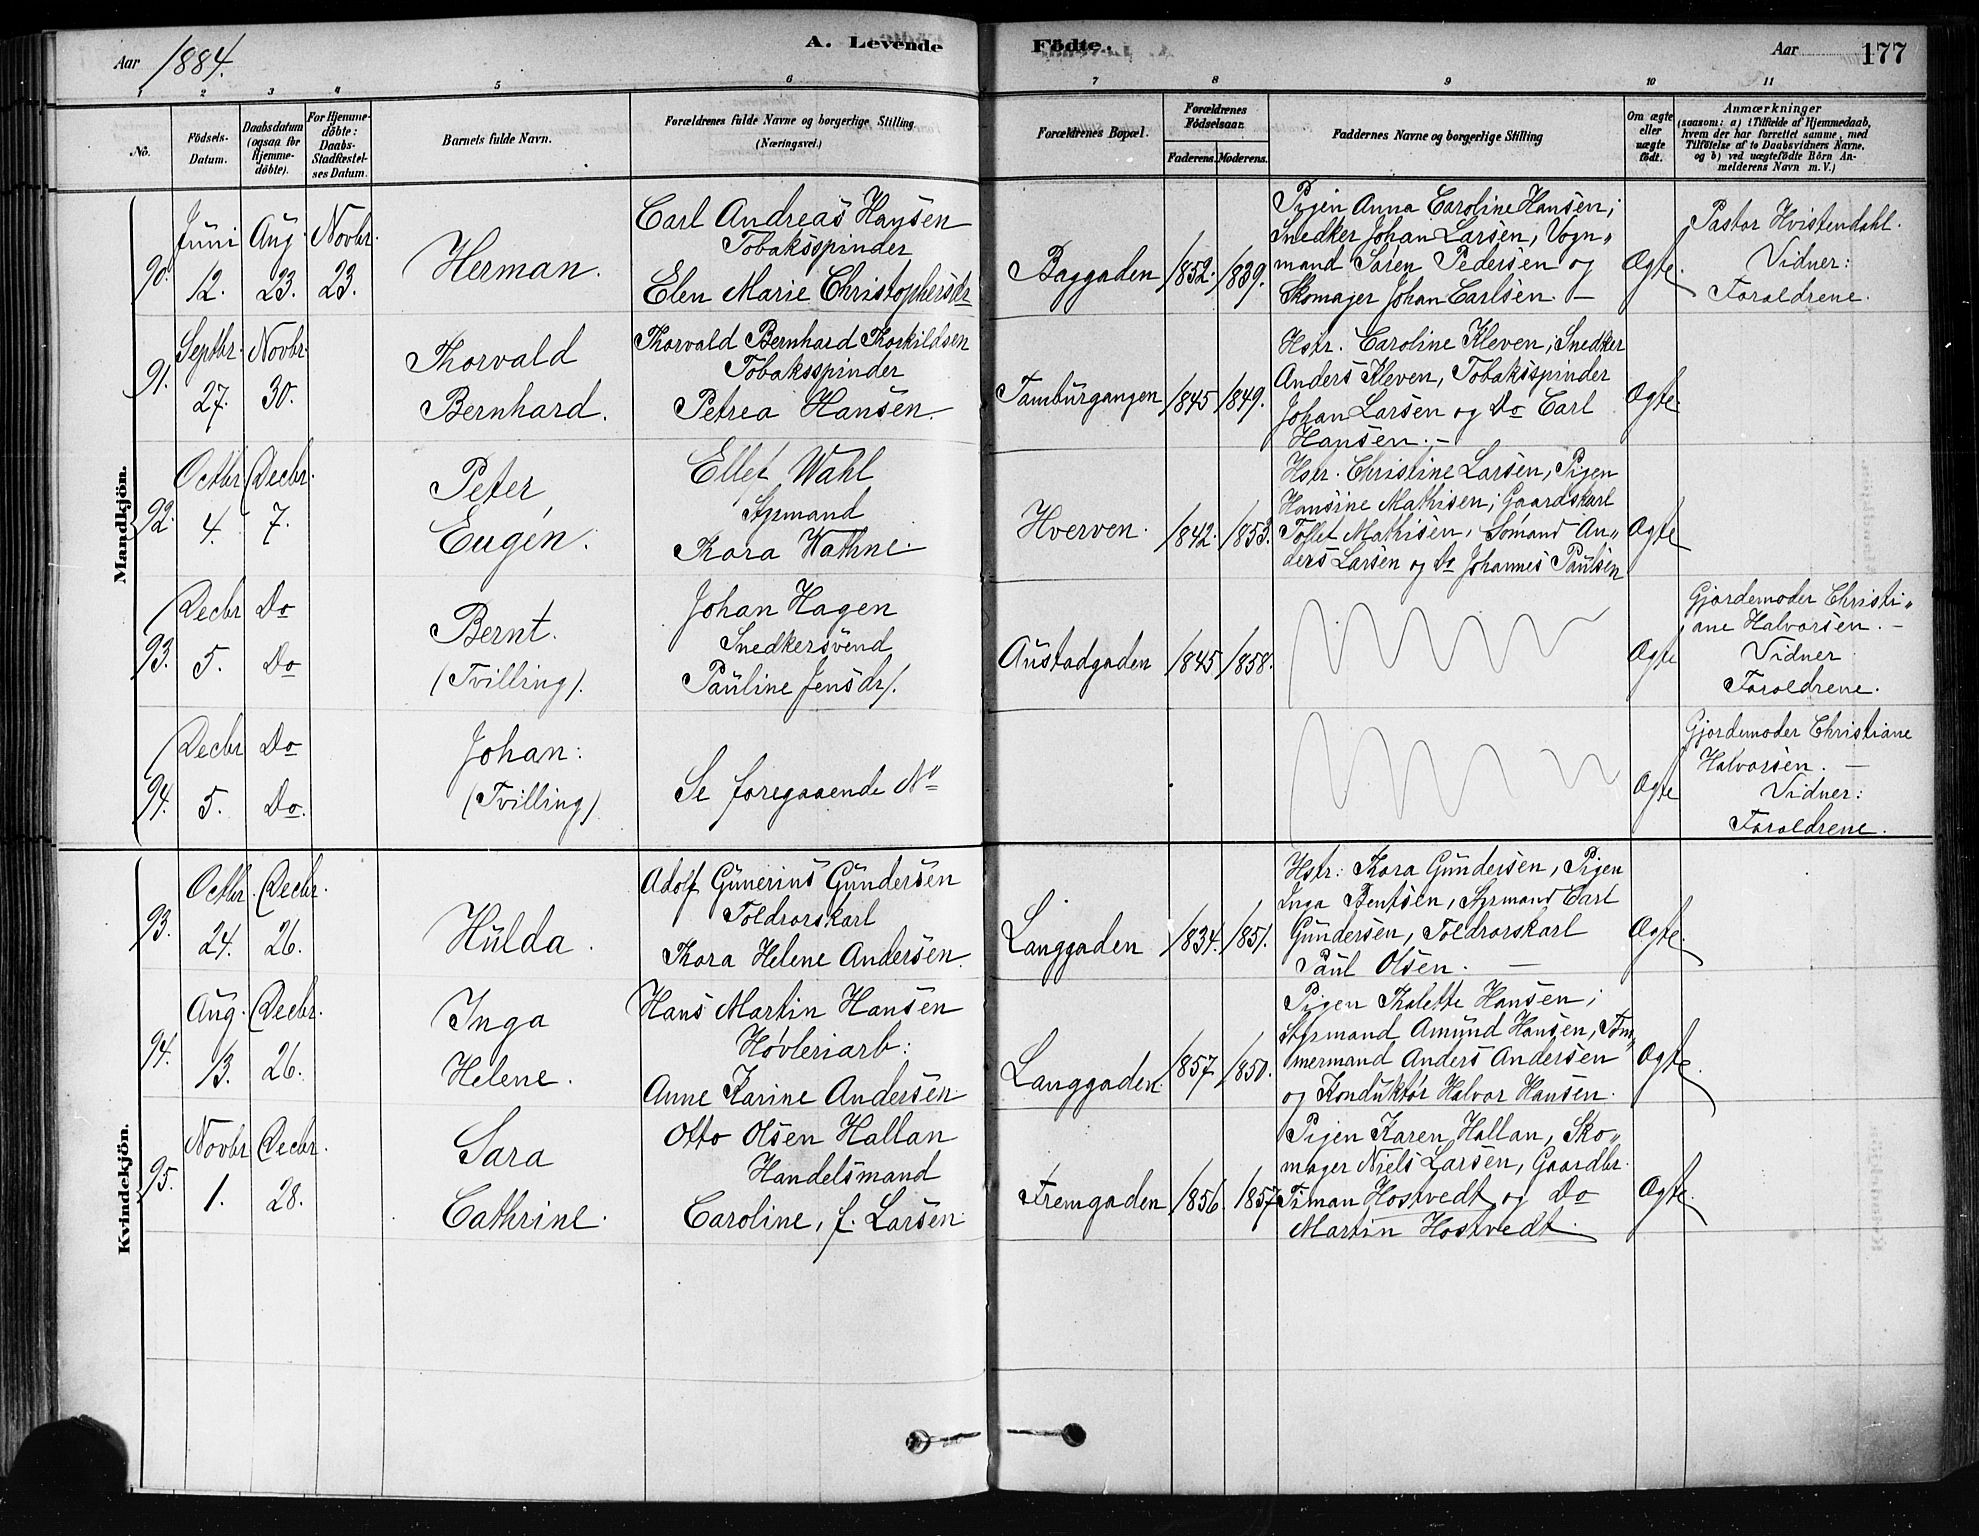 Aar 1884.
A. Levende
Födte.
Aar
177
1 2 3 4 5 6 7 8 9 10 11
No.
Födsels-
Datum.
Daabsdatum
(ogsaa for
Hjemme-
döbte).
For Hjemme-
döbte:
Daabs-
Stadfæstel-
ses Datum.
Barnets fulde Navn.
Forældrenes fulde Navne og borgerlige Stilling
(Næringsvei.)
Forældrenes Bopæl.
Forældrenes
Födselsaar.
Faderens. Moderens.
Faddernes Navne og borgerlige Stilling
Om ægte
eller
uægte
födt.
Anmærkninger
(saasom: a) i Tilfælde af Hjemmedaab,
hvem der har forrettet samme, med
Tilföielse af to Daabsvidners Navne,
og b) ved uægtefödte Börn An-
melderens Navn m. V.)
Mandkjön.
90.
Juni
12.
Aug.
23.
Novbr.
23.
Herman.
Carl Andreas Hansen
Tobaksspinder
Elen Marie Christophersdr
Baggaden
1852.
1839.
Pigen Anna Caroline Hansen;
Snedker Johan Larsen, Vogn„
mand Søren Pedersen og
Skomager Johan Carlsen. —
Ægte.
Pastor Hvistendahl.
Vidner:
Forældrene.
91.
Septbr.
27.
Novbr.
30.
Thorvald
Bernhard.
Thorvald Bernhard Thorkildsen
Tobaksspinder
Petrea Hansen.
Tamburgangen
1845
1849.
Hstr. Caroline Kleven; Snedker
Anders Kleven, Tobaksspinder
Johan Larsen og Do Carl
Hansen. —
Ægte.
92.
Octbr
4.
Decbr.
7.
Peter
Eugén.
Ellef Wahl
Styrmand
Thora Wathne.
Hverven.
1842.
1853.
Hstr. Christine Larsen, Pigen
Hansine Mathisen; Gaardskarl
Tollef Mathisen, Sømand An„
ders Larsen og Do Johannes Paulsen
Ægte
93.
Decbr
5.
Do
Do
Bernt.
(Tvilling).
Johan Hagen
Snedkersvend
Pauline Jensdr.
Austadgaden
1845
1858.
Ægte
Gjordemoder Christi„
ane Halvorsen. —
Vidner
Forældrene.
94.
Decbr
5.
Do
Do.
Johan:
(Tvilling)
Se foregaaende No
Ægte
Gjordemoder Christiane
Halvorsen. —
Vidner:
Forældrene.
Kvindekjön.
93.
Octbr.
24.
Decbr.
26.
Hulda.
Adolf Gunerius Gundersen
Toldrorskarl
Thora Helene Andersen.
Langgaden
1834.
1851.
Hstr: Thora Gundersen, Pigen
Inga Bentsen, Styrmand Carl
Gundersen, Toldrorskarl
Paul Olsen. —
Ægte.
94.
Aug.
13.
Decbr.
26.
Inga
Helene.
Hans Martin Hansen
Høvleriarb:
Anne Karine Andersen
Langgaden.
1857
1850.
Pigen Thalette Hansen;
Styrmand Amund Hansen, Töm„
mermand Anders Andersen
og Konduktør Halvor Hansen.
Ægte.
95.
Novbr
1.
Decbr.
28.
Sara
Cathrine.
Otto Olsen Hallan
Handelsmand
Caroline, f. Larsen
Fremgaden
1856.
1857
Pigen Karen Hallan, Sko„
mager Niels Larsen, Gaardbr.
Timan Hostvedt og Do
Martin Hostvedt.
Ægte.